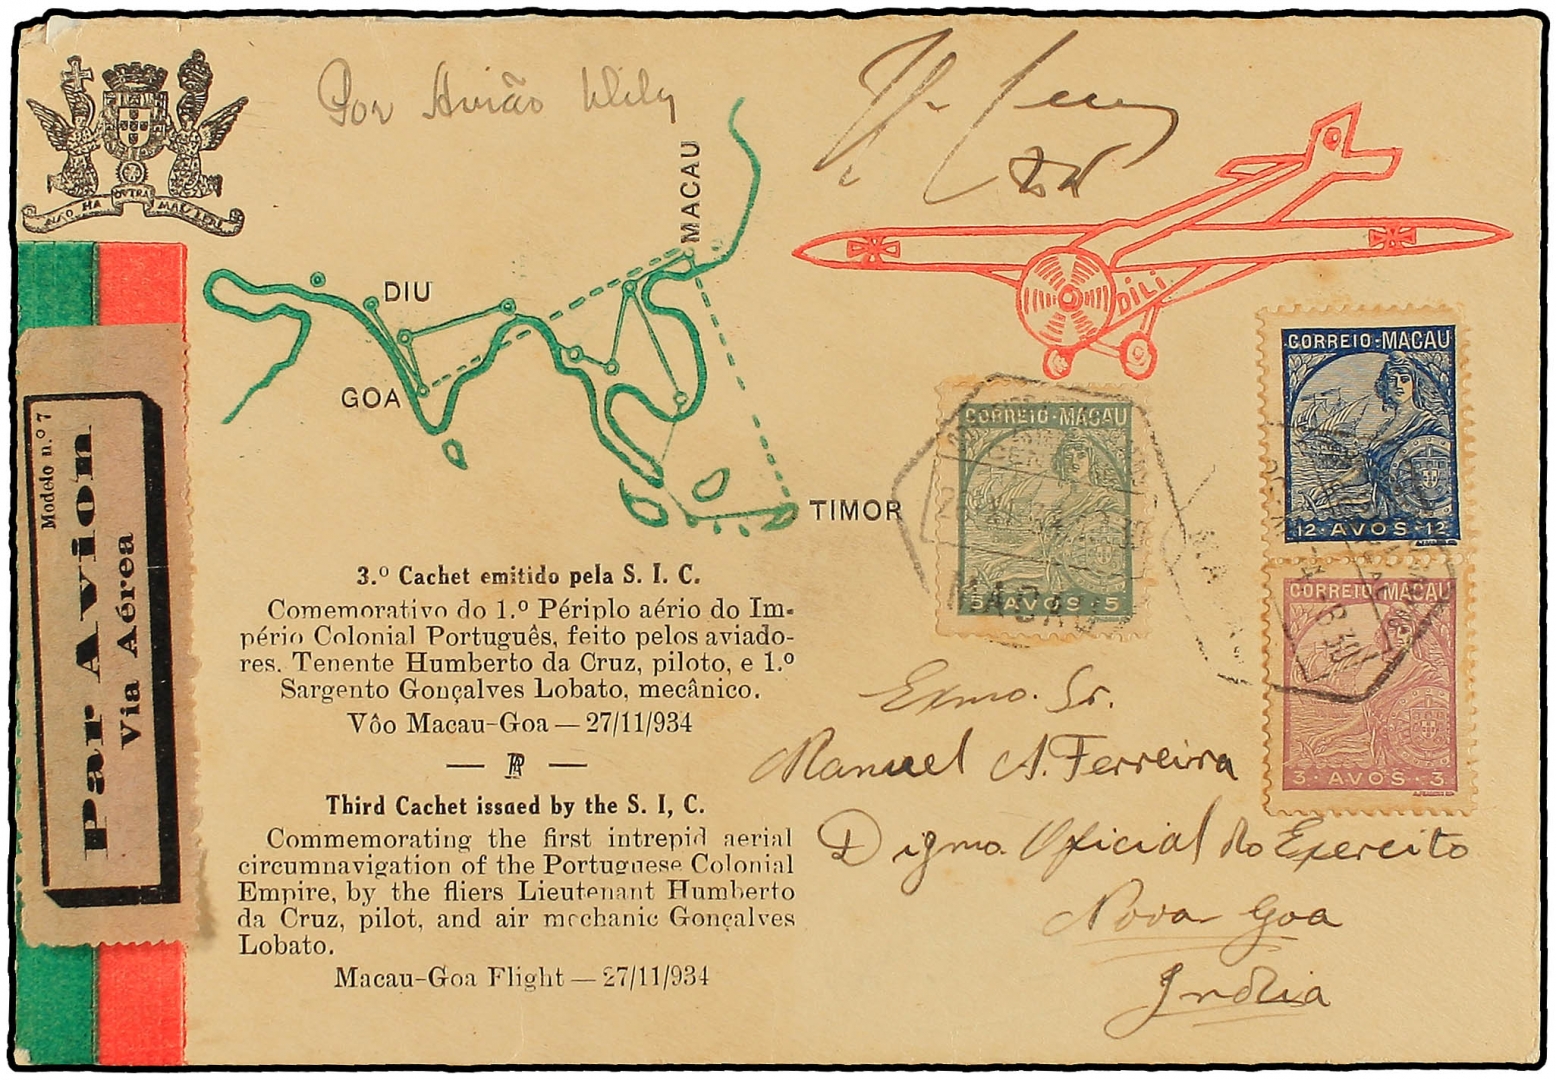 NÃO HA OVTRA MAIS LEAL
Por Avião Dily
MACAU
DIU
GOA
TIMOR
DILI
Modelo n.º 7
Par Avion
Via Aérea
CORREIO-MACAU
5·AVOS·5
MACAU
CORREIO-MACAU
12·AVOS·12
CORREIO MACAU
3·AVOS·3
3.º Cachet emitido pela S. I. C.
Comemorativo do 1.º Périplo aério do Im-
pério Colonial Português, feito pelos aviado-
res. Tenente Humberto da Cruz, piloto, e 1.º
Sargento Gonçalves Lobato, mecânico.
Vôo Macau-Goa — 27/11/934
Third Cachet issued by the S. I, C.
Commemorating the first intrepid aerial
circumnavigation of the Portuguese Colonial
Empire, by the fliers Lieutenant Humberto
da Cruz, pilot, and air mechanic Gonçalves
Lobato.
Macau-Goa Flight — 27/11/934
Exmo. Sr.
Manuel A. Ferreira
Digmo. Oficial do Exercito
Nova Goa
India